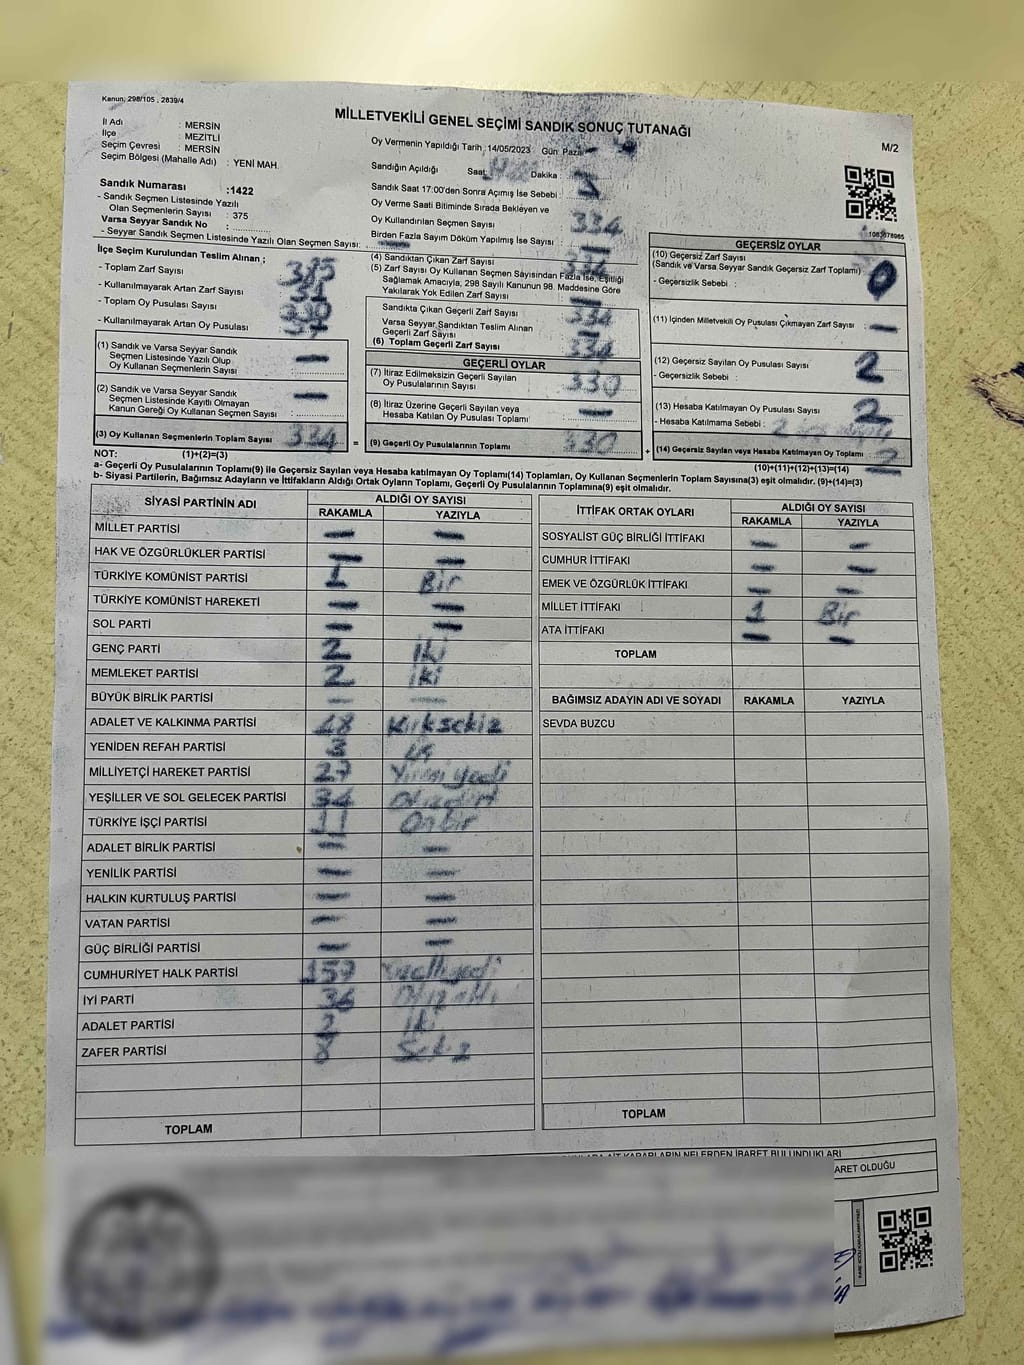 Kanun; 298/105 , 2839/4
MİLLETVEKİLİ GENEL SEÇİMİ SANDIK SONUÇ TUTANAĞI
M/2
İl Adı : MERSİN
İlçe : MEZİTLİ
Seçim Çevresi : MERSİN
Seçim Bölgesi (Mahalle Adı) : YENİ MAH.
Sandık Numarası :1422
- Sandık Seçmen Listesinde Yazılı
Olan Seçmenlerin Sayısı : 375
Varsa Seyyar Sandık No :
- Seyyar Sandık Seçmen Listesinde Yazılı Olan Seçmen Sayısı: —
Oy Vermenin Yapıldığı Tarih :14/05/2023 Gün: Pazar
Sandığın Açıldığı Saat: Dakika :
Sandık Saat 17:00'den Sonra Açımış İse Sebebi :
Oy Verme Saati Bitiminde Sırada Bekleyen ve
Oy Kullandırılan Seçmen Sayısı 334
Birden Fazla Sayım Döküm Yapılmış İse Sayısı : —
İlçe Seçim Kurulundan Teslim Alınan ;
- Toplam Zarf Sayısı : 385
- Kullanılmayarak Artan Zarf Sayısı : 51
- Toplam Oy Pusulası Sayısı :
- Kullanılmayarak Artan Oy Pusulası :
(1) Sandık ve Varsa Seyyar Sandık
Seçmen Listesinde Yazılı Olup
Oy Kullanan Seçmenlerin Sayısı : —
(2) Sandık ve Varsa Seyyar Sandık
Seçmen Listesinde Kayıtlı Olmayan
Kanun Gereği Oy Kullanan Seçmen Sayısı : —
(3) Oy Kullanan Seçmenlerin Toplam Sayısı : 334 =
(4) Sandıktan Çıkan Zarf Sayısı : 334
(5) Zarf Sayısı Oy Kullanan Seçmen Sayısından Fazla İse, Eşitliği
Sağlamak Amacıyla, 298 Sayılı Kanunun 98. Maddesine Göre
Yakılarak Yok Edilen Zarf Sayısı : —
Sandıkta Çıkan Geçerli Zarf Sayısı : 334
Varsa Seyyar Sandıktan Teslim Alınan
Geçerli Zarf Sayısı : —
(6) Toplam Geçerli Zarf Sayısı : 334
GEÇERLİ OYLAR
(7) İtiraz Edilmeksizin Geçerli Sayılan
Oy Pusulalarının Sayısı : 330
(8) İtiraz Üzerine Geçerli Sayılan veya
Hesaba Katılan Oy Pusulası Toplamı : —
(9) Geçerli Oy Pusulalarının Toplamı : 330 +
1063678965
GEÇERSİZ OYLAR
(10) Geçersiz Zarf Sayısı
(Sandık ve Varsa Seyyar Sandık Geçersiz Zarf Toplamı) : 0
- Geçersizlik Sebebi :
(11) İçinden Milletvekili Oy Pusulası Çıkmayan Zarf Sayısı : —
(12) Geçersiz Sayılan Oy Pusulası Sayısı : 2
- Geçersizlik Sebebi :
(13) Hesaba Katılmayan Oy Pusulası Sayısı : 2
- Hesaba Katılmama Sebebi :
(14) Geçersiz Sayılan veya Hesaba Katılmayan Oy Toplamı : 2
(10)+(11)+(12)+(13)=(14)
NOT: (1)+(2)=(3)
a- Geçerli Oy Pusulalarının Toplamı(9) ile Geçersiz Sayılan veya Hesaba katılmayan Oy Toplamı(14) Toplamları, Oy Kullanan Seçmenlerin Toplam Sayısına(3) eşit olmalıdır. (9)+(14)=(3)
b- Siyasi Partilerin, Bağımsız Adayların ve İttifakların Aldığı Ortak Oyların Toplamı, Geçerli Oy Pusulalarının Toplamına(9) eşit olmalıdır.
SİYASİ PARTİNİN ADI ALDIĞI OY SAYISI
RAKAMLA YAZIYLA
MİLLET PARTİSİ — —
HAK VE ÖZGÜRLÜKLER PARTİSİ — —
TÜRKİYE KOMÜNİST PARTİSİ 1 Bir
TÜRKİYE KOMÜNİST HAREKETİ — —
SOL PARTİ — —
GENÇ PARTİ 2 iki
MEMLEKET PARTİSİ 2 iki
BÜYÜK BİRLİK PARTİSİ — —
ADALET VE KALKINMA PARTİSİ 48 Kırksekiz
YENİDEN REFAH PARTİSİ 3
MİLLİYETÇİ HAREKET PARTİSİ 27 Yirmi yedi
YEŞİLLER VE SOL GELECEK PARTİSİ 34 Otuzdört
TÜRKİYE İŞÇİ PARTİSİ 11 Onbir
ADALET BİRLİK PARTİSİ — —
YENİLİK PARTİSİ — —
HALKIN KURTULUŞ PARTİSİ — —
VATAN PARTİSİ — —
GÜÇ BİRLİĞİ PARTİSİ — —
CUMHURİYET HALK PARTİSİ 157 Yüzelliyedi
İYİ PARTİ 36 Otuz altı
ADALET PARTİSİ 2 İki
ZAFER PARTİSİ 8 Sekiz
TOPLAM
İTTİFAK ORTAK OYLARI ALDIĞI OY SAYISI
RAKAMLA YAZIYLA
SOSYALİST GÜÇ BİRLİĞİ İTTİFAKI — —
CUMHUR İTTİFAKI — —
EMEK VE ÖZGÜRLÜK İTTİFAKI — —
MİLLET İTTİFAKI 1 Bir
ATA İTTİFAKI — —
TOPLAM
BAĞIMSIZ ADAYIN ADI VE SOYADI RAKAMLA YAZIYLA
SEVDA BUZCU
TOPLAM
KARARLARIN NELERDEN İBARET BULUNDUKLARI
ARET OLDUĞU